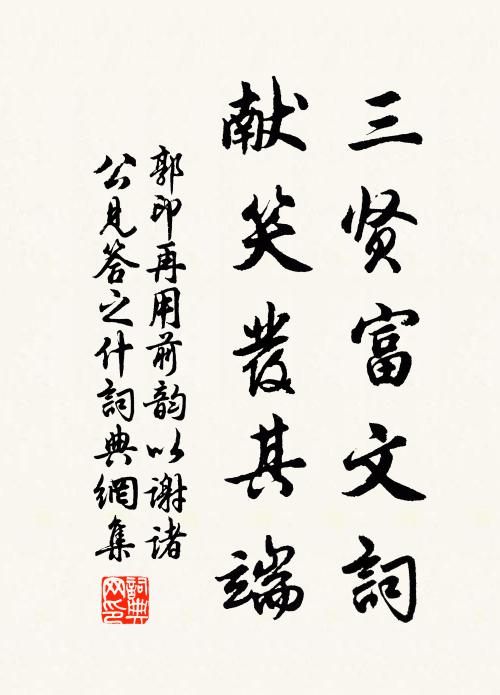 三贤富文詞
献笑發其端
郭印再用前韵以謝诸
公見答之什詞典網集
詞典
网印